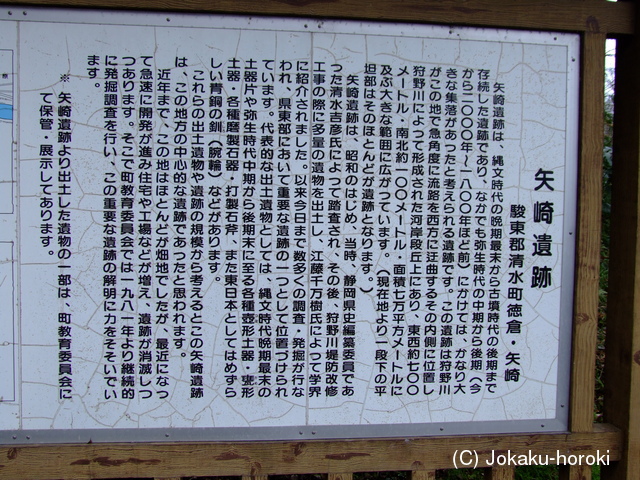 矢崎遺跡
駿東郡清水町徳倉・矢崎
矢崎遺跡は、縄文時代の晩期最末から古墳時代の後期まで
存続した遺跡であり、なかでも弥生時代の中期から後期（今
から二〇〇〇年～一八〇〇年ほど前）にかけては、かなり大
きな集落があったと考えられる遺跡です。この遺跡は狩野川
がこの地で急角度に流路を西方に迂曲するその内側に位置し
狩野川によって形成された河岸段丘上にあり、東西約七〇〇
メートル・南北約一〇〇メートル・面積七万平方メートルに
及ぶ大きな範囲に広がっています。（現在地より一段下の平
坦部はそのほとんどが遺跡となります。）
矢崎遺跡は、昭和のはじめ、当時、静岡県史編纂委員であ
った清水吉彦氏によって踏査され、その後、狩野川堤防改修
工事の際に多量の遺物を出土し、江藤千万樹氏によって学界
に紹介されました。以来今日まで数多くの調査・発掘が行な
われ、県東部において重要な遺跡の一つとして位置づけられ
ています。代表的な出土遺物としては、縄文時代晩期最末の
土器片や弥生時代中期から後期末に至る各種壺形土器・甕形
土器・各種磨製石器・打製石斧、また東日本としてはめずら
しい青銅の釧（腕輪）などがあります。
これらの出土遺物や遺跡の規模から考えるとこの矢崎遺跡
は、この地方の中心的な遺跡であったと思われます。
近年まで、この地はほとんどが畑地でしたが、最近になっ
て急速に開発が進み住宅や工場などが増え、遺跡が消滅しつ
つあります。そこで町教育委員会では一九八一年より継続的
に発掘調査を行い、この重要な遺跡の解明に力をそそいでい
ます。
※ 矢崎遺跡より出土した遺物の一部は、町教育委員会に
て保管・展示してあります。
(C) Jokaku-horoki